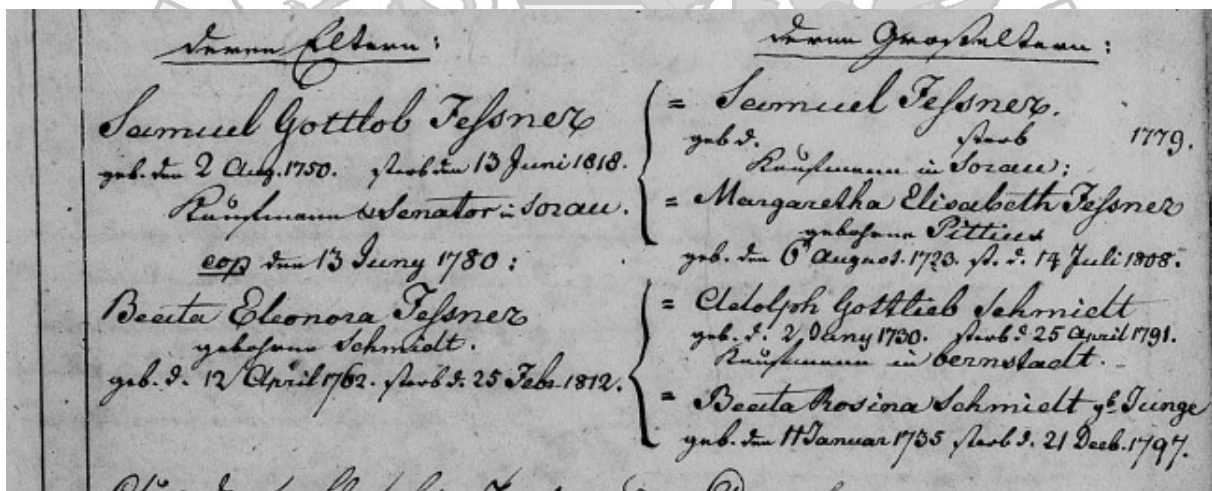 deren Eltern:
Samuel Gottlob Feßner
geb. den 2 Aug. 1750. starb den 13 Juni 1818.
Kaufmann & Senator in Sorau.
cop den 13 Juny 1780:
Beata Eleonora Feßner
gebohrne Schmidt.
geb. d. 12 April 1762. starb d. 25 Febr. 1812.
deren Großeltern:
= Samuel Feßner.
geb d. starb 1779.
Kaufmann in Sorau:
= Margaretha Elisabeth Feßner
gebohrne Pittius
geb. den 6 August. 1723. st. d. 14 Juli 1808.
= Adolph Gottlieb Schmidt
geb. d. 2 Juny 1730. starb d. 25 April 1791.
Kaufmann in Bernstadt.
= Beata Rosina Schmidt gb Junge
geb. den 11 Januar 1735 starb d. 21 Decb. 1797.